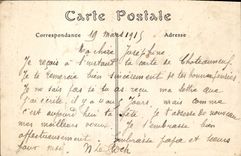 Carte Postale
Correspondance Adresse
19 mars 1915
Ma chère Joséphine
Je reçois à l'instant ta carte de Châteauneuf.
Je te remercie bien sincèrement
Je ne sais pas si tu as reçu ma lettre que
j'ai écrite, il y a Jours, mais comme
c'est aujourd'hui ta fête je t'adresse de nouveau
mes meilleurs Je t'embrasse bien
affectueusement papa et
pour moi.